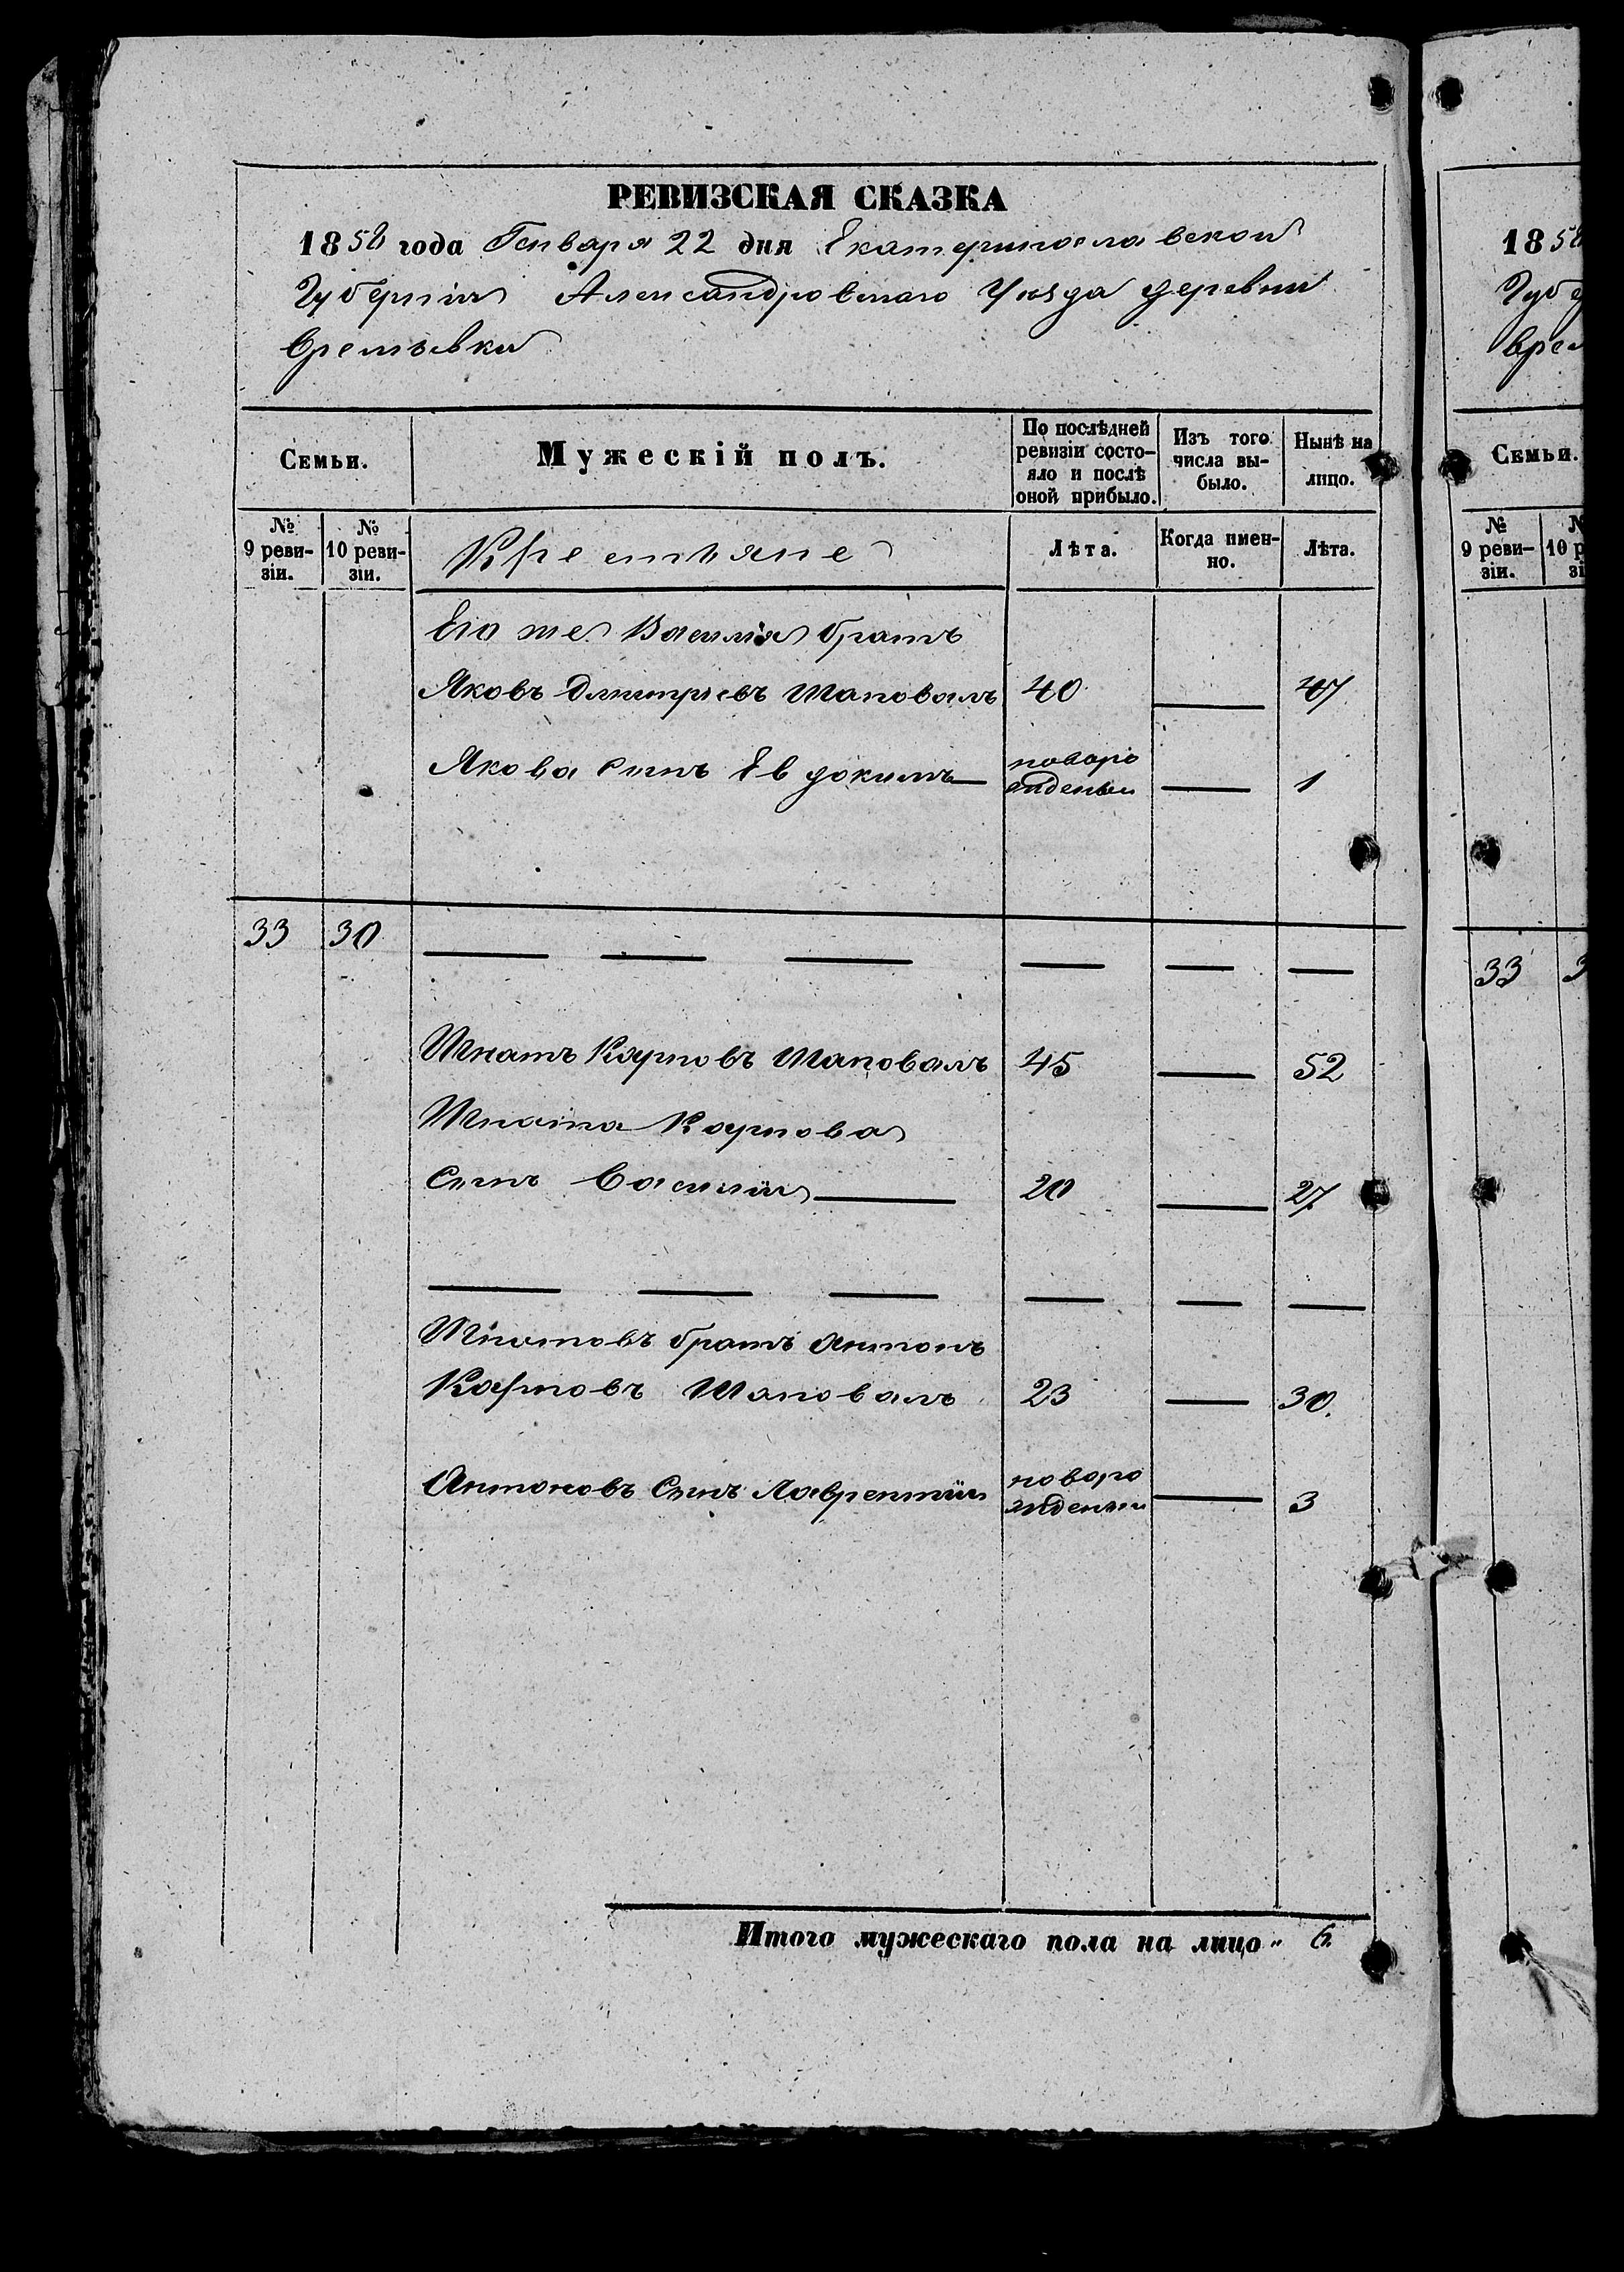 РЕВИЗСКАЯ СКАЗКА
1858 года Генваря 22 дня Екатеринославской
Губерніи Александровскаго Уѣзда деревни
Времьевки
Семьи.
Мужескій полъ.
По послѣдней ревизіи состо-яло и послѣ оной прибыло.
Изъ того числа вы-было.
Нынѣ на лицо.
№ 9 реви-зіи.
№ 10 реви-зіи.
Крестьяне
Лѣта.
Когда имен-но.
Лѣта.
Его же Василія братъ
Яковъ Дмитріевъ Шаповалъ 40 — 47
Якова сынъ Евдокимъ — новоро
жденный — 1
33 30 — — — — — —
Игнатъ Карповъ Шаповалъ 45 — 52
Игната Карпова
Сынъ Василій — 20 — 27
— — — — — —
Игнатовъ братъ Антонъ
Карповъ Шаповалъ 23 — 30.
Антоновъ Сынъ Лаврентій новоро
жденный — 3
Итого мужескаго пола на лицо „ 6.
1858
Губе
Врем
Семьи.
№ 9 реви-зіи.
33 3